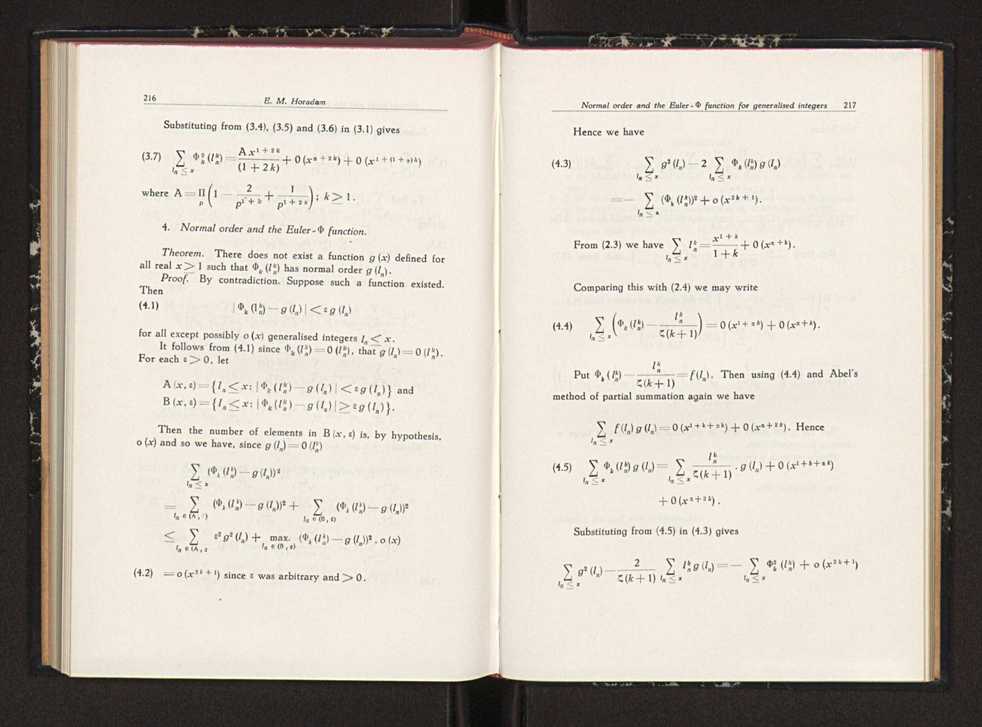 216 E. M. Horadam
Substituting from (3.4), (3.5) and (3.6) in (3.1) gives
(3.7) ∑_{lₙ ≤ x} Φ²_k (l^k_n) = A x^{1 + 2k} / (1 + 2k) + 0 (x^{α + 2k}) + 0 (x^{1 + (1 + α)k})
where A = Π_p (1 − 2/p^{1 + k} + 1/p^{1 + 2k}); k ≥ 1.
4. Normal order and the Euler-Φ function.
Theorem. There does not exist a function g (x) defined for
all real x ≥ 1 such that Φ_k (l^k_n) has normal order g (l_n).
Proof. By contradiction. Suppose such a function existed.
Then
(4.1) | Φ_k (l^k_n) − g (l_n) | < ε g (l_n)
for all except possibly o (x) generalised integers l_n ≤ x.
It follows from (4.1) since Φ_k (l^k_n) = 0 (l^k_n), that g (l_n) = 0 (l^k_n).
For each ε > 0, let
A (x, ε) = { l_n ≤ x : | Φ_k (l^k_n) − g (l_n) | < ε g (l_n) } and
B (x, ε) = { l_n ≤ x : | Φ_k (l^k_n) − g (l_n) | ≥ ε g (l_n) }.
Then the number of elements in B (x, ε) is, by hypothesis,
o (x) and so we have, since g (l_n) = 0 (l^k_n)
∑_{l_n ≤ x} (Φ_k (l^k_n) − g (l_n))²
= ∑_{l_n ∈ (A, ε)} (Φ_k (l^k_n) − g (l_n))² + ∑_{l_n ∈ (B, ε)} (Φ_k (l^k_n) − g (l_n))²
≤ ∑_{l_n ∈ (A, ε} ε² g² (l_n) + max._{l_n ∈ (B, ε)} (Φ_k (l^k_n) − g (l_n))² . o (x)
(4.2) = o (x^{2k + 1}) since ε was arbitrary and > 0.
Normal order and the Euler-Φ function for generalised integers 217
Hence we have
(4.3) ∑_{l_n ≤ x} g² (l_n) − 2 ∑_{l_n ≤ x} Φ_k (l^k_n) g (l_n)
= − ∑_{l_n ≤ x} (Φ_k (l^k_n))² + o (x^{2k + 1}).
From (2.3) we have ∑_{l_n ≤ x} l^k_n = x^{1 + k} / (1 + k) + 0 (x^{α + k}).
Comparing this with (2.4) we may write
(4.4) ∑_{l_n ≤ x} (Φ_k (l^k_n) − l^k_n / ζ(k + 1)) = 0 (x^{1 + αk}) + 0 (x^{α + k}).
Put Φ_k (l^k_n) − l^k_n / ζ(k + 1) = f (l_n). Then using (4.4) and Abel's
method of partial summation again we have
∑_{l_n ≤ x} f (l_n) g (l_n) = 0 (x^{1 + k + αk}) + 0 (x^{α + 2k}). Hence
(4.5) ∑_{l_n ≤ x} Φ_k (l^k_n) g (l_n) = ∑_{l_n ≤ x} l^k_n / ζ(k + 1) . g (l_n) + 0 (x^{1 + k + αk})
+ 0 (x^{α + 2k}).
Substituting from (4.5) in (4.3) gives
∑_{l_n ≤ x} g² (l_n) − 2 / ζ(k + 1) ∑_{l_n ≤ x} l^k_n g (l_n) = − ∑_{l_n ≤ x} Φ²_k (l^k_n) + o (x^{2k + 1})